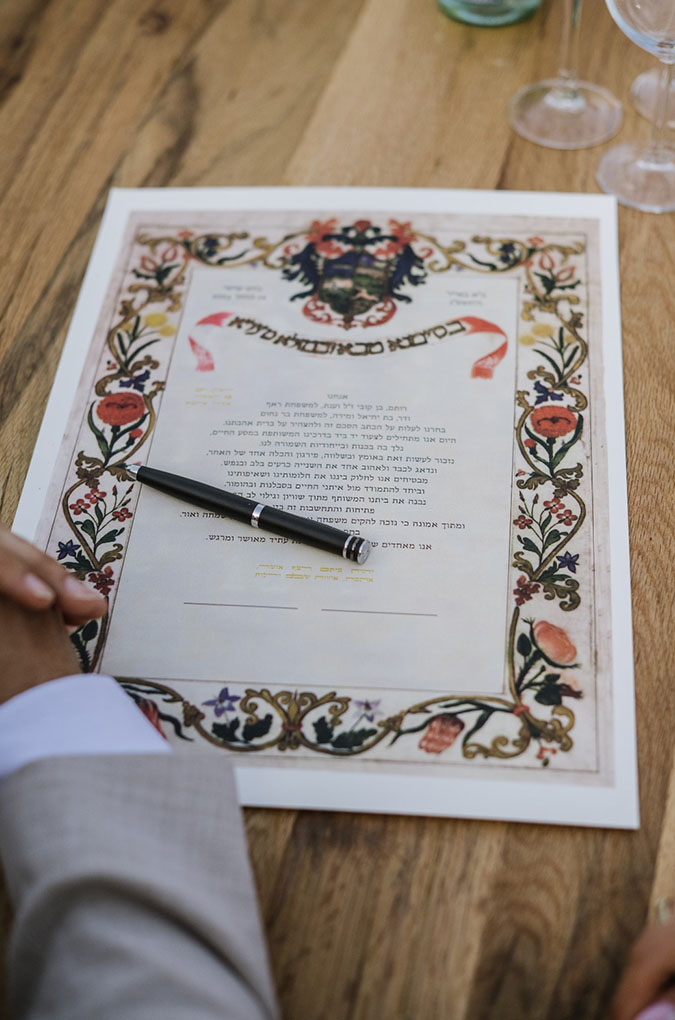 בסימנא טבא ובמזלא מעליא
אנחנו
רותם, בן קובי ז"ל וענת, למשפחת ראף
ודר, בת יחיאל ומירה, למשפחת בר נחום
בחרנו לעלות על הכתב הסכם זה ולהצהיר על ברית אהבתנו.
היום אנו מתחילים לצעוד יד ביד בדרכינו המשותפת במסע החיים,
נלך בה בכנות ובייחודיות השמורה לנו.
נזכור לעשות זאת באומץ ובשלווה, פירגון והכלה אחד של האחר,
ונדאג לכבד ולאהוב אחד את השנייה כרעים בלב ובנפש.
מבטיחים אנו לחלוק ביננו את חלומותינו ושאיפותינו
וביחד להתמודד מול איתני החיים בסבלנות ובהומור.
נבנה את ביתנו המשותף מתוך שוויון וגילוי לב
פתיחות והתחשבות זה בזו,
ומתוך אמונה כי נזכה להקים משפחה שמחה ואור.
אנו מאחדים עתיד מאושר ומרגש.